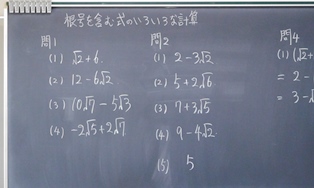 根号を含む式のいろいろな計算
問1
(1) √2+6
(2) 12-6√2
(3) 10√7-5√3
(4) -2√5+2√7
問2
(1) 2-3√2
(2) 5+2√6
(3) 7+3√5
(4) 9-4√2
(5) 5
問4
(1) (√2+
= 2-
= 3-√